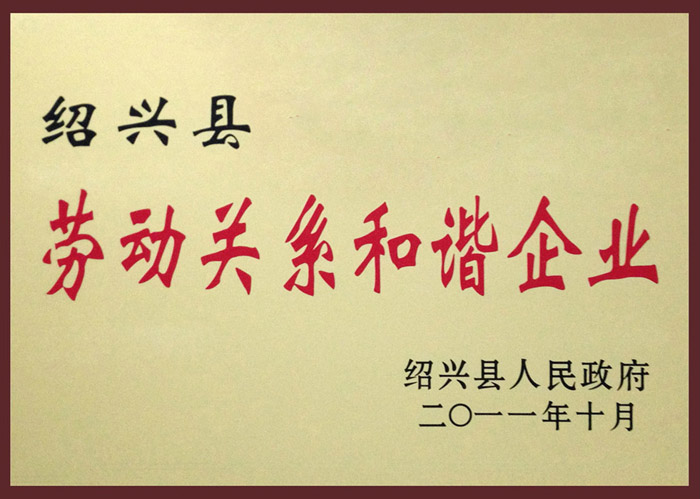 绍兴县
劳动关系和谐企业
绍兴县人民政府
二〇一一年十月